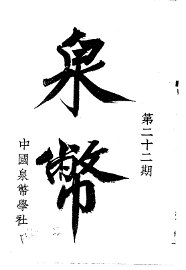 泉幣
第二十二期
中國泉幣學社